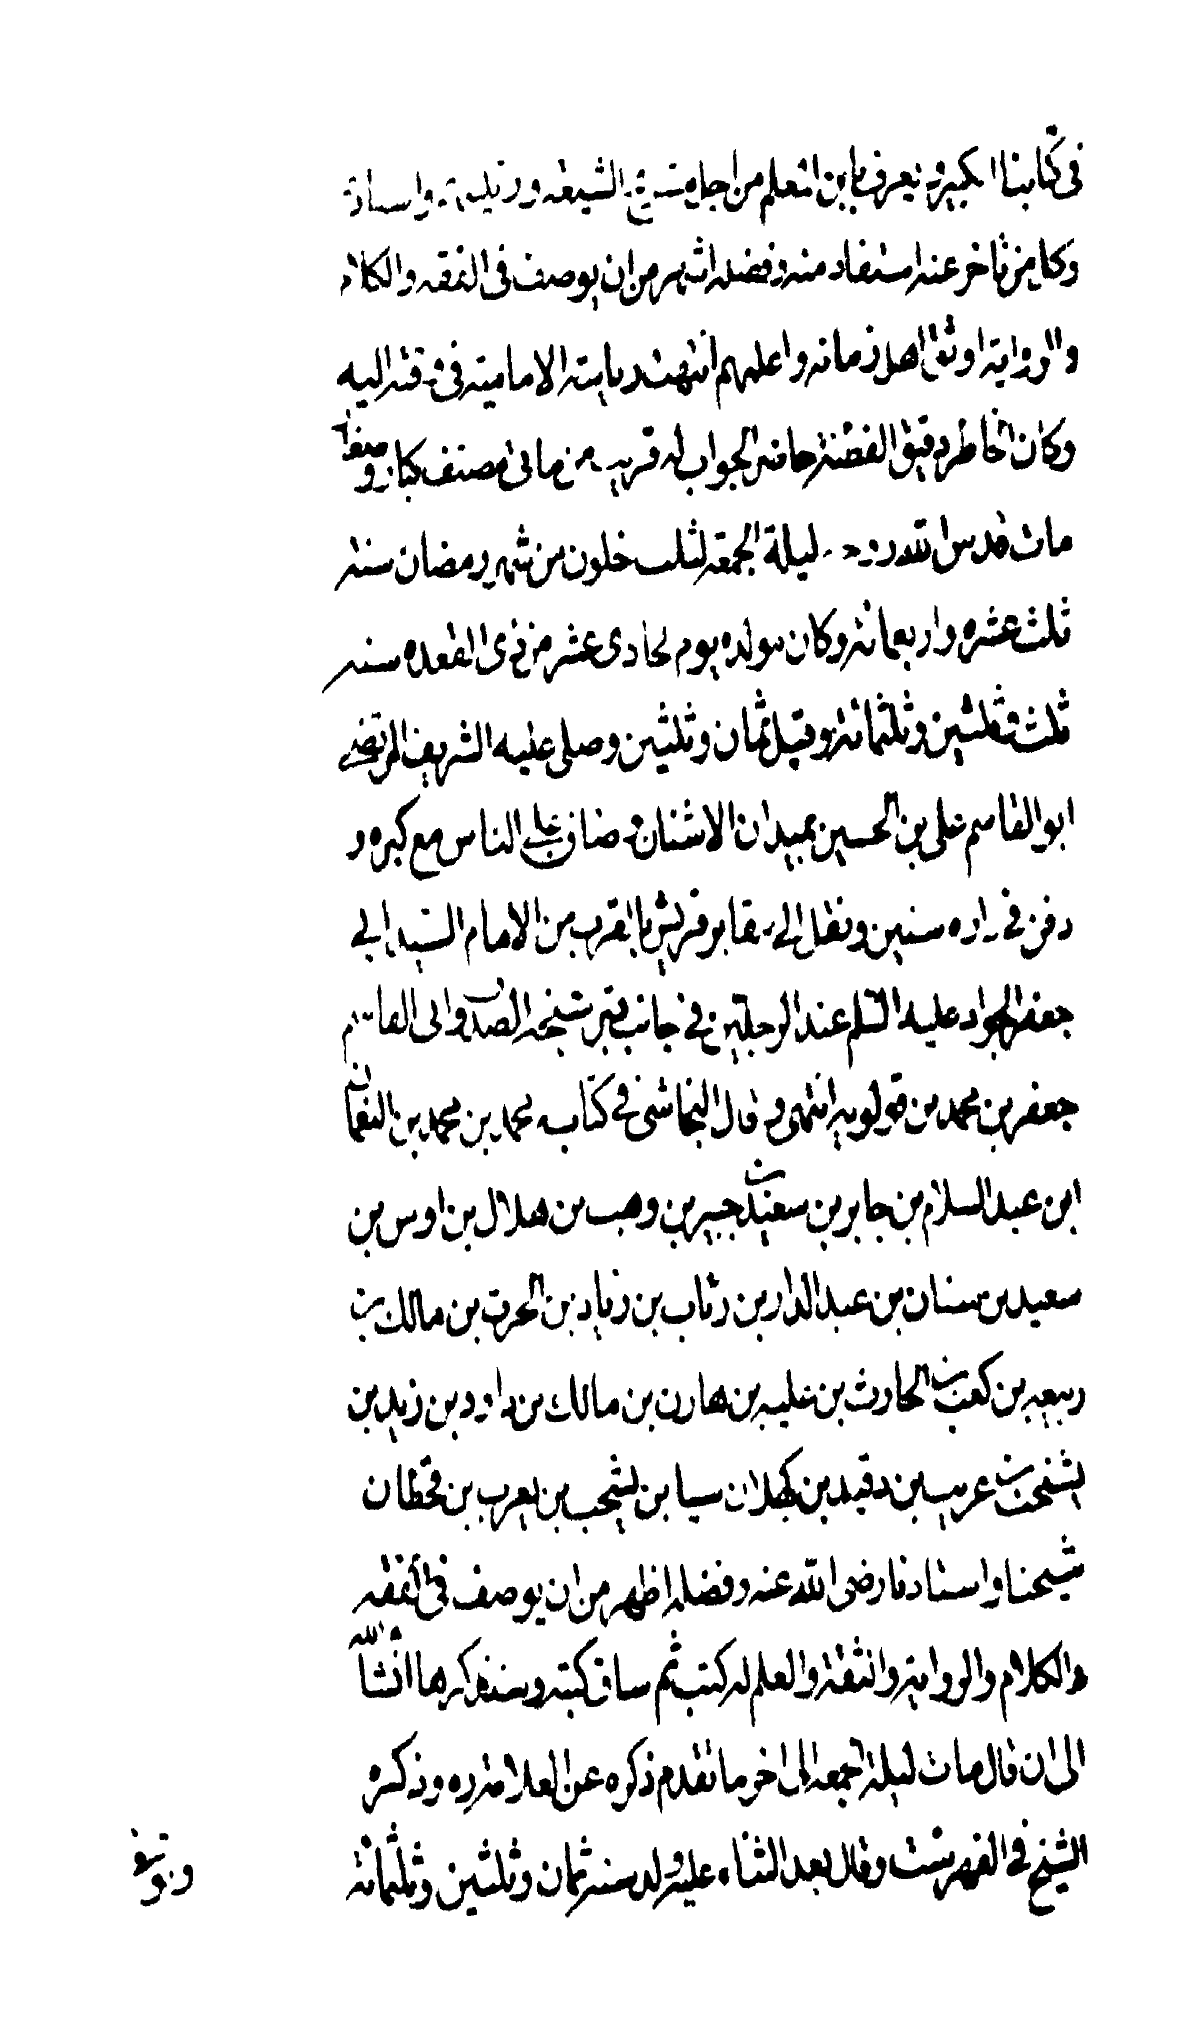 فى كتابنا الكبير و يعرف بابن المعلم من اجل مشايخ الشيعه و رئيسهم و استاذ
وكل من تاخر عنه استفاد منه وفضله اشهر من ان يوصف فى الفقه والكلام
والرواية اوثق اهل زمانه واعلمهم انتهت رياسته الامامية فى وقته اليه
وكان الخاطر دقيق الفطنة حاضر الجواب له قريب من مائى مصنف كبار و صغار
مات قدس الله روحه ليلة الجمعة لثلث خلون من شهر رمضان سنة
ثلث عشره واربعمائة وكان مولده يوم لحادى عشر من ذى القعده سنه
ثلث وثلثين وثلثمائة وقيل ثمان وثلثين وصلى عليه الشريف المرتضى
ابوالقاسم على بن الحسين بميدان الاشنان و ضاق على الناس مع كبره و
دفن فى داره سنين ونقل الى مقابر قريش بالقرب من الامام السيد ابى
جعفر الجواد عليه السلم عند الرجلين فى جانب قبر شيخه الصدوق ابى القاسم
جعفر بن محمد بن قولويه انتهى و قال النجاشى فى كتابه محمد بن محمد بن النعمان
ابن عبد السلام بن جابر بن سعيد بن جبير بن وهب بن هلال بن اوس بن
سعيد بن سنان بن عبد الدار بن رئاب بن زياد بن الحرث بن مالك بن
ربيعه بن كعب بن الحارث بن عليه بن هارن بن مالك بن داود بن زيد بن
يشخب بن عريب بن دقيد بن كهلان سبا بن يشجب بن يعرب بن قحطان
شيخنا واستادنا رضى الله عنه وفضله اظهر من ان يوصف فى الفقه
والكلام والرواية والثقة والعلم له كتب ثم ساق كتبه وسنذكرها انشاء الله
الى ان قال مات ليلة الجمعه الى اخر ما تقدم ذكره عن العلامة ره وذكره
الشيخ فى الفهرست وقال بعد الثناء عليه ولد سنة ثمان وثلثين وثلثمائة
وتوفى